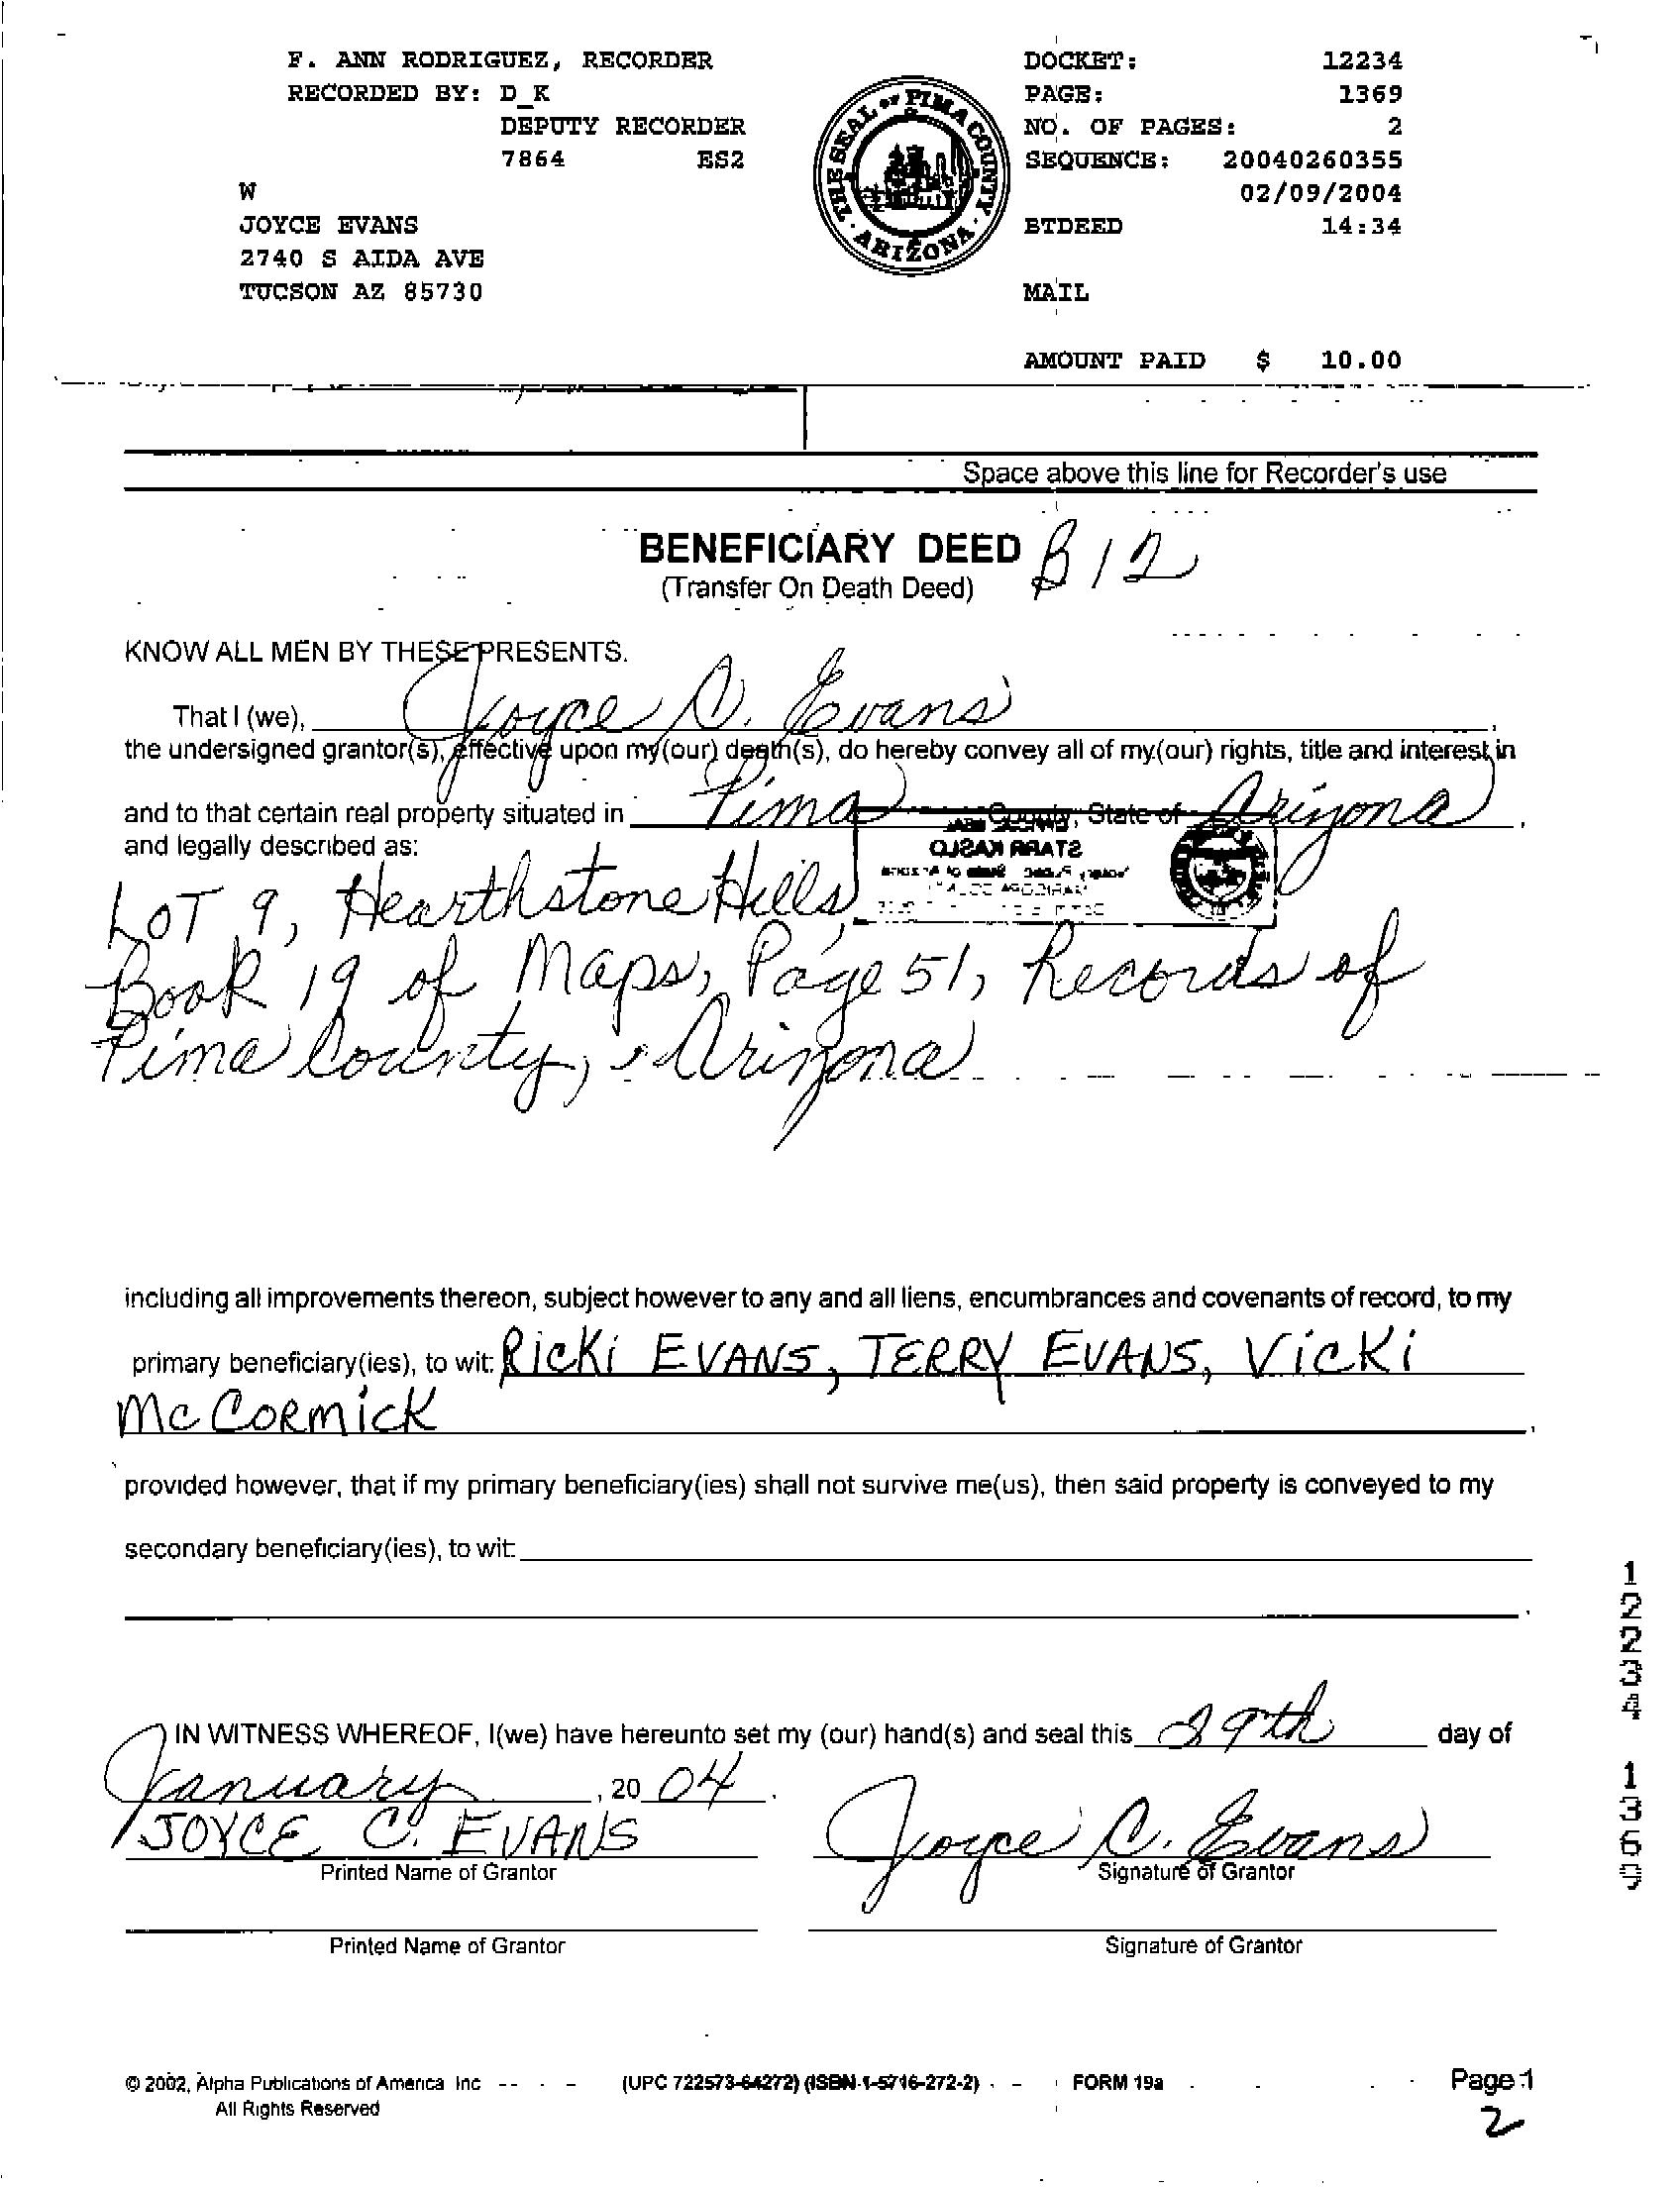 F. ANN RODRIGUEZ, RECORDER
RECORDED BY: D_K
DEPUTY RECORDER
7864 ES2
W
JOYCE EVANS
2740 S AIDA AVE
TUCSON AZ 85730
THE SEAL OF PIMA COUNTY · ARIZONA ·
DOCKET: 12234
PAGE: 1369
NO. OF PAGES: 2
SEQUENCE: 20040260355
02/09/2004
BTDEED 14:34
MAIL
AMOUNT PAID $ 10.00
Space above this line for Recorder's use
BENEFICIARY DEED B12
(Transfer On Death Deed)
KNOW ALL MEN BY THESE PRESENTS.
That I (we), Joyce C. Evans,
the undersigned grantor(s), effective upon my(our) death(s), do hereby convey all of my(our) rights, title and interest in
and to that certain real property situated in Pima County, State of Arizona,
and legally described as:
LOT 9, Hearthstone Hills
Book 19 of Maps, Page 51, Records of
Pima County, Arizona
including all improvements thereon, subject however to any and all liens, encumbrances and covenants of record, to my
primary beneficiary(ies), to wit: RicKi EVANS, TERRY EVANS, VicKi
McCORMicK,
provided however, that if my primary beneficiary(ies) shall not survive me(us), then said property is conveyed to my
secondary beneficiary(ies), to wit:
IN WITNESS WHEREOF, I(we) have hereunto set my (our) hand(s) and seal this 29th day of
January, 20 04.
JOYCE C. EVANS Joyce C. Evans
Printed Name of Grantor Signature of Grantor
Printed Name of Grantor Signature of Grantor
12234 1369
© 2002, Alpha Publications of America Inc (UPC 722573-64272) (ISBN-1-5716-272-2) FORM 19a Page 1
All Rights Reserved 2